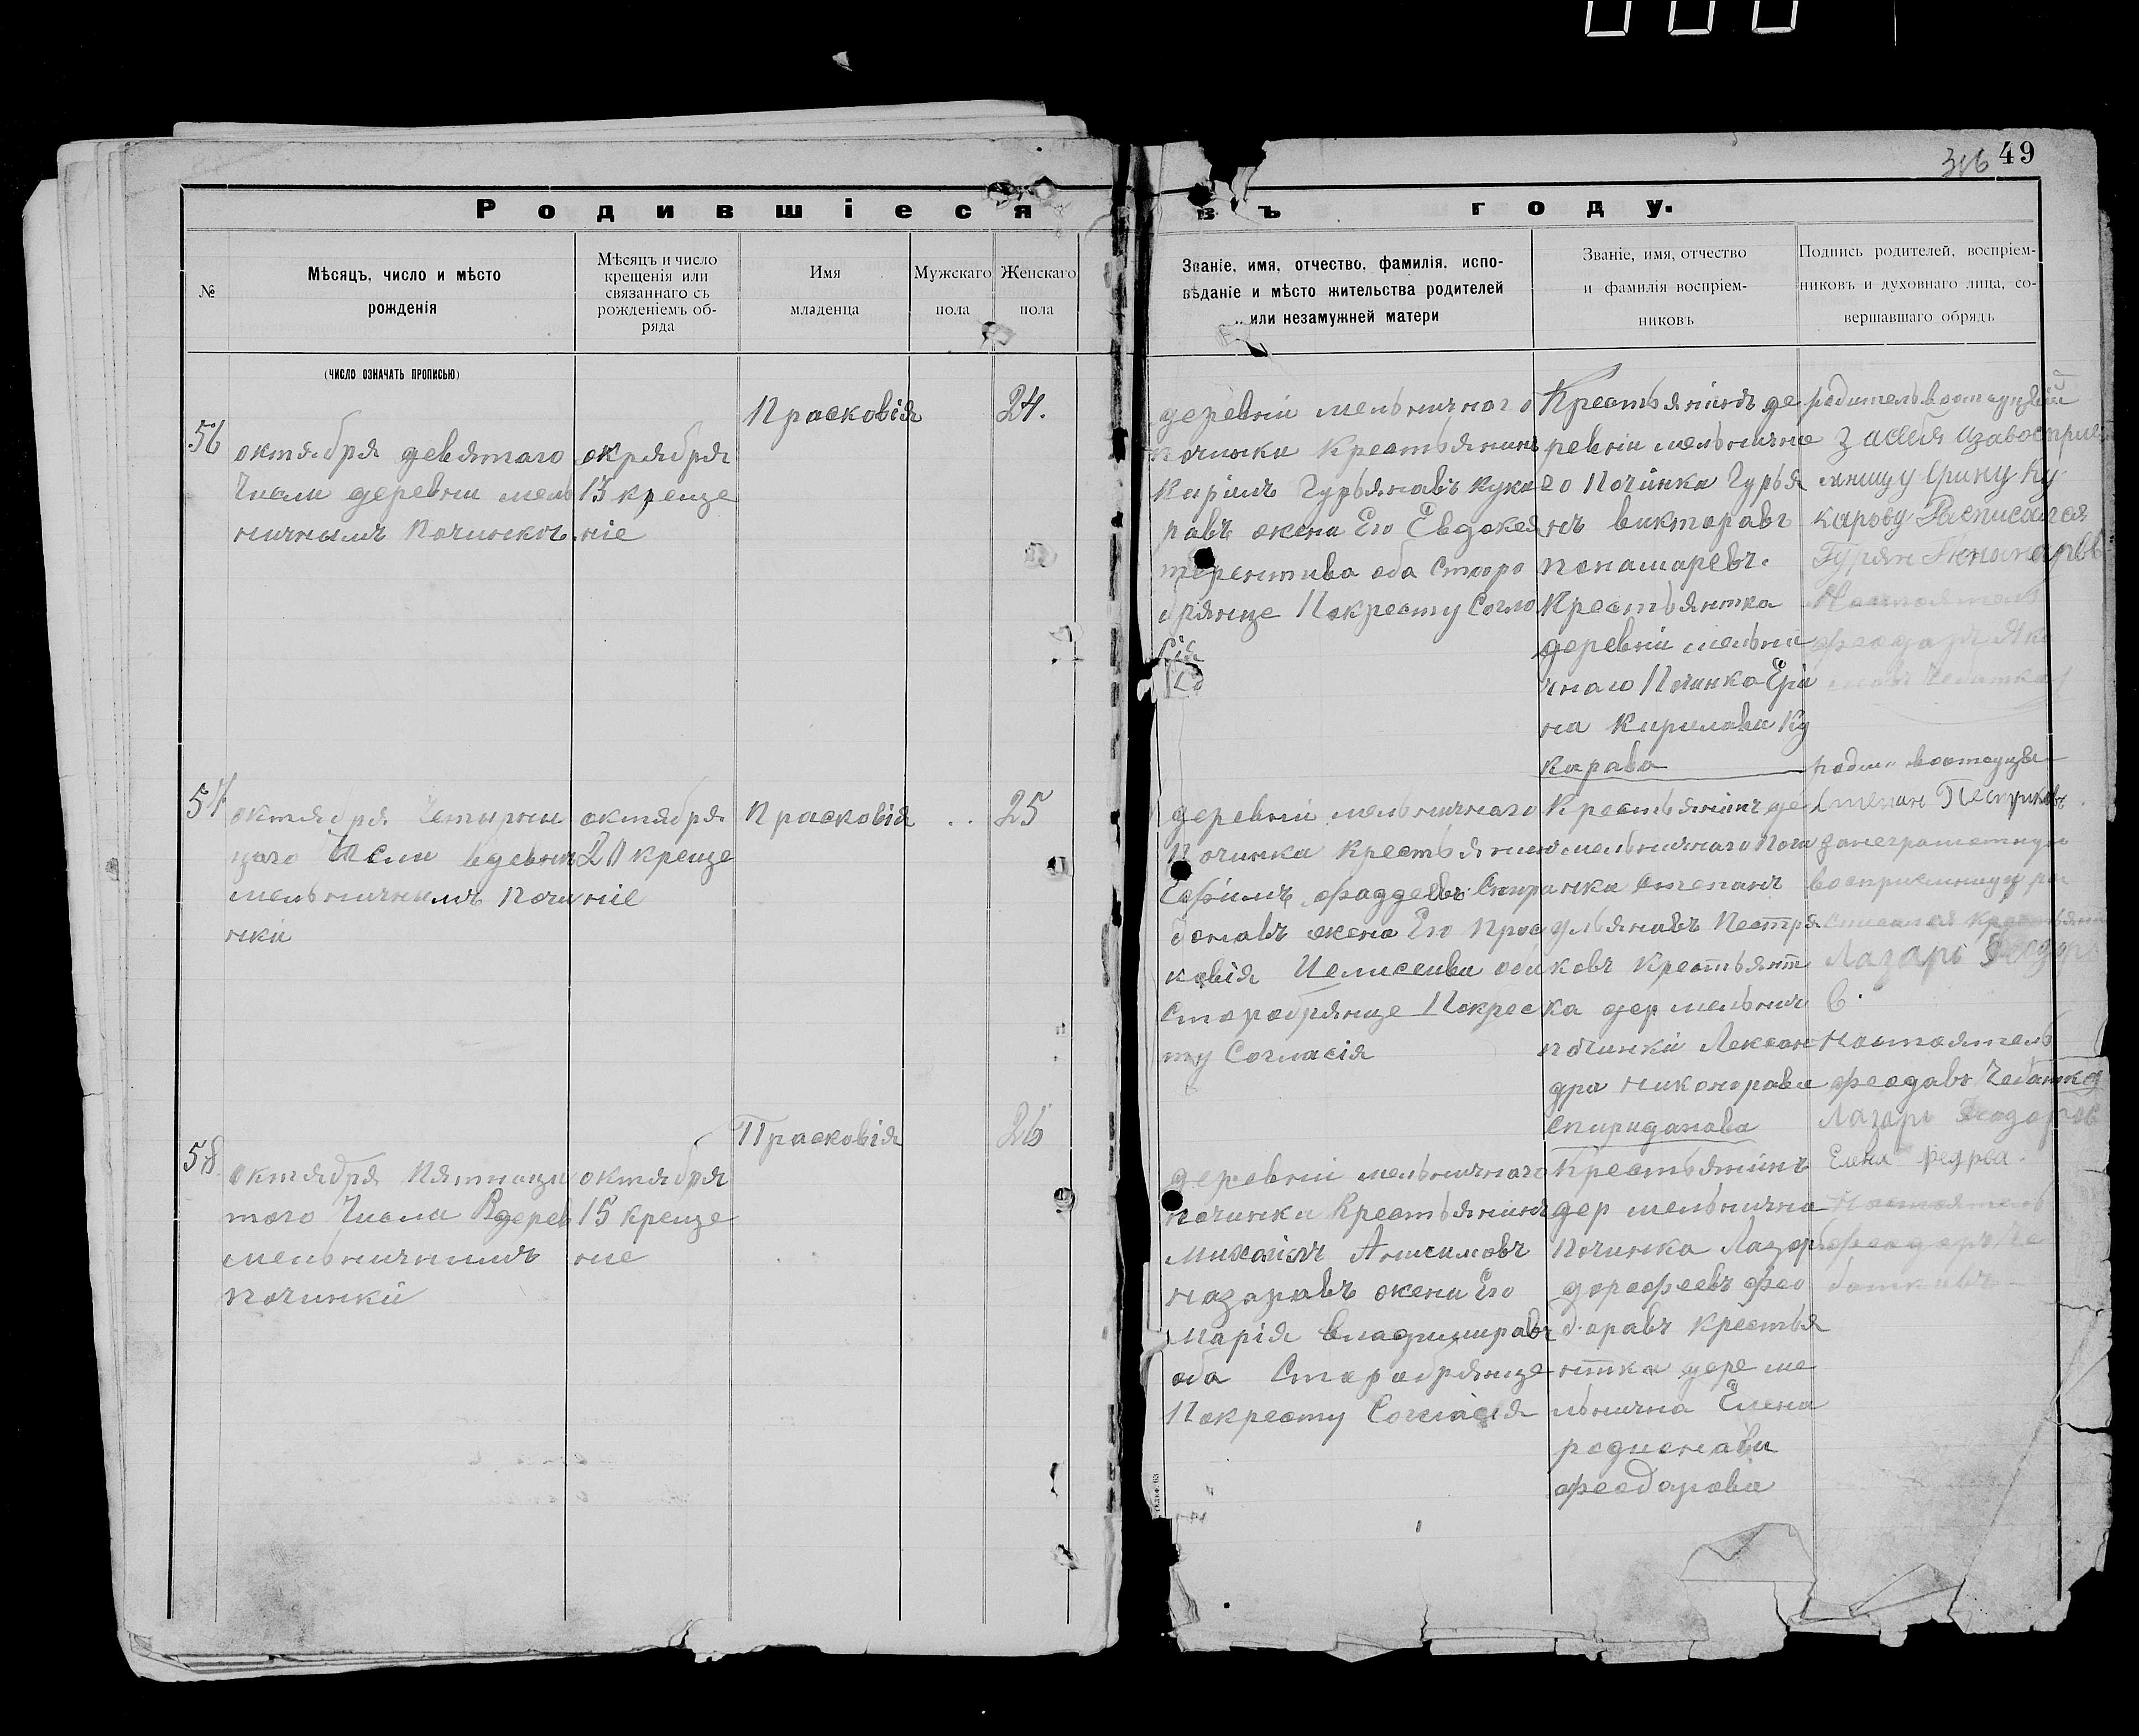 316 49
Родившіеся въ году.
№
Мѣсяцъ, число и мѣсто
рожденія
Мѣсяцъ и число
крещенія или
связаннаго съ
рожденіемъ об-
ряда
Имя
младенца
Мужскаго
пола
Женскаго
пола
Званіе, имя, отчество, фамилія, испо-
вѣданіе и мѣсто жительства родителей
или незамужней матери
Званіе, имя, отчество
и фамилія воспріем-
никовъ
Подпись родителей, воспріем-
никовъ и духовнаго лица, со-
вершавшаго обрядъ
(число означать прописью)
56
октября девятаго
Числи деревни мель
ничнымъ починкъ
окрября
13 креще
ніе
Прасковія
24.
деревніи мельничного
починки Крестьянинъ
Кирилъ Гурьянавъ Кука
равъ жена Его Евдокея
терентива оба Старо
обрянце Покресту Согло
сія
Крестьянинъ де
ревніи мельнично
го Починка Гурья
нъ викторавъ
понамаревъ.
Крестьянтка
деревніи мельни
чнаго Починка Ері
на Кирилава Ку
карава
родитель
за себя изавосприе
мницу Ерину Ку
карову Расписался
Гурян
Настоятель
57
октября Четырнц
цаго Числи вдевни
мельничнымъ почи
нки
октября
20 креще
ніе
Прасковія
25
деревніи мельничнаго
Починка Крестьянин
Ефимъ Фаддевъ Спири
донавъ жена Его Прас
ковія Иелисеива оби
Старобрянце Покрес
ту Согласія
Крестьянинъ де
мельничнаго Почи
нка степанъ
ульянавъ Пестря
ковъ Крестьянт
ка дер мельнич
починкіи Лексан
дра никонорава
Спиридонава
Степан Пестриков
занеграмотную
восприемницу ра
списался крестьяни
Лазарь Феодоро
в.
Настоятель
феодавъ Чебатков
58
октября Пятнацы
того Числа Вдерев
мельничнимъ
починкіи
октября
15 креще
ние
Прасковія
26
деревніи мельничнаго
починки Крестьянинъ
Михаилъ Анисимовъ
назаравъ жена Его
Марія владимировъ
оба Старобрянце
Покресту Согласія
Крестьянинъ
дер мельнична
Починка Лазорь
дорофеевъ фео
доравъ Крестья
нтка дере ме
льнична Елена
родионава
феодорова
Лазарь Феодоров
Елена
Настоятель
феодоръ Че
батковъ